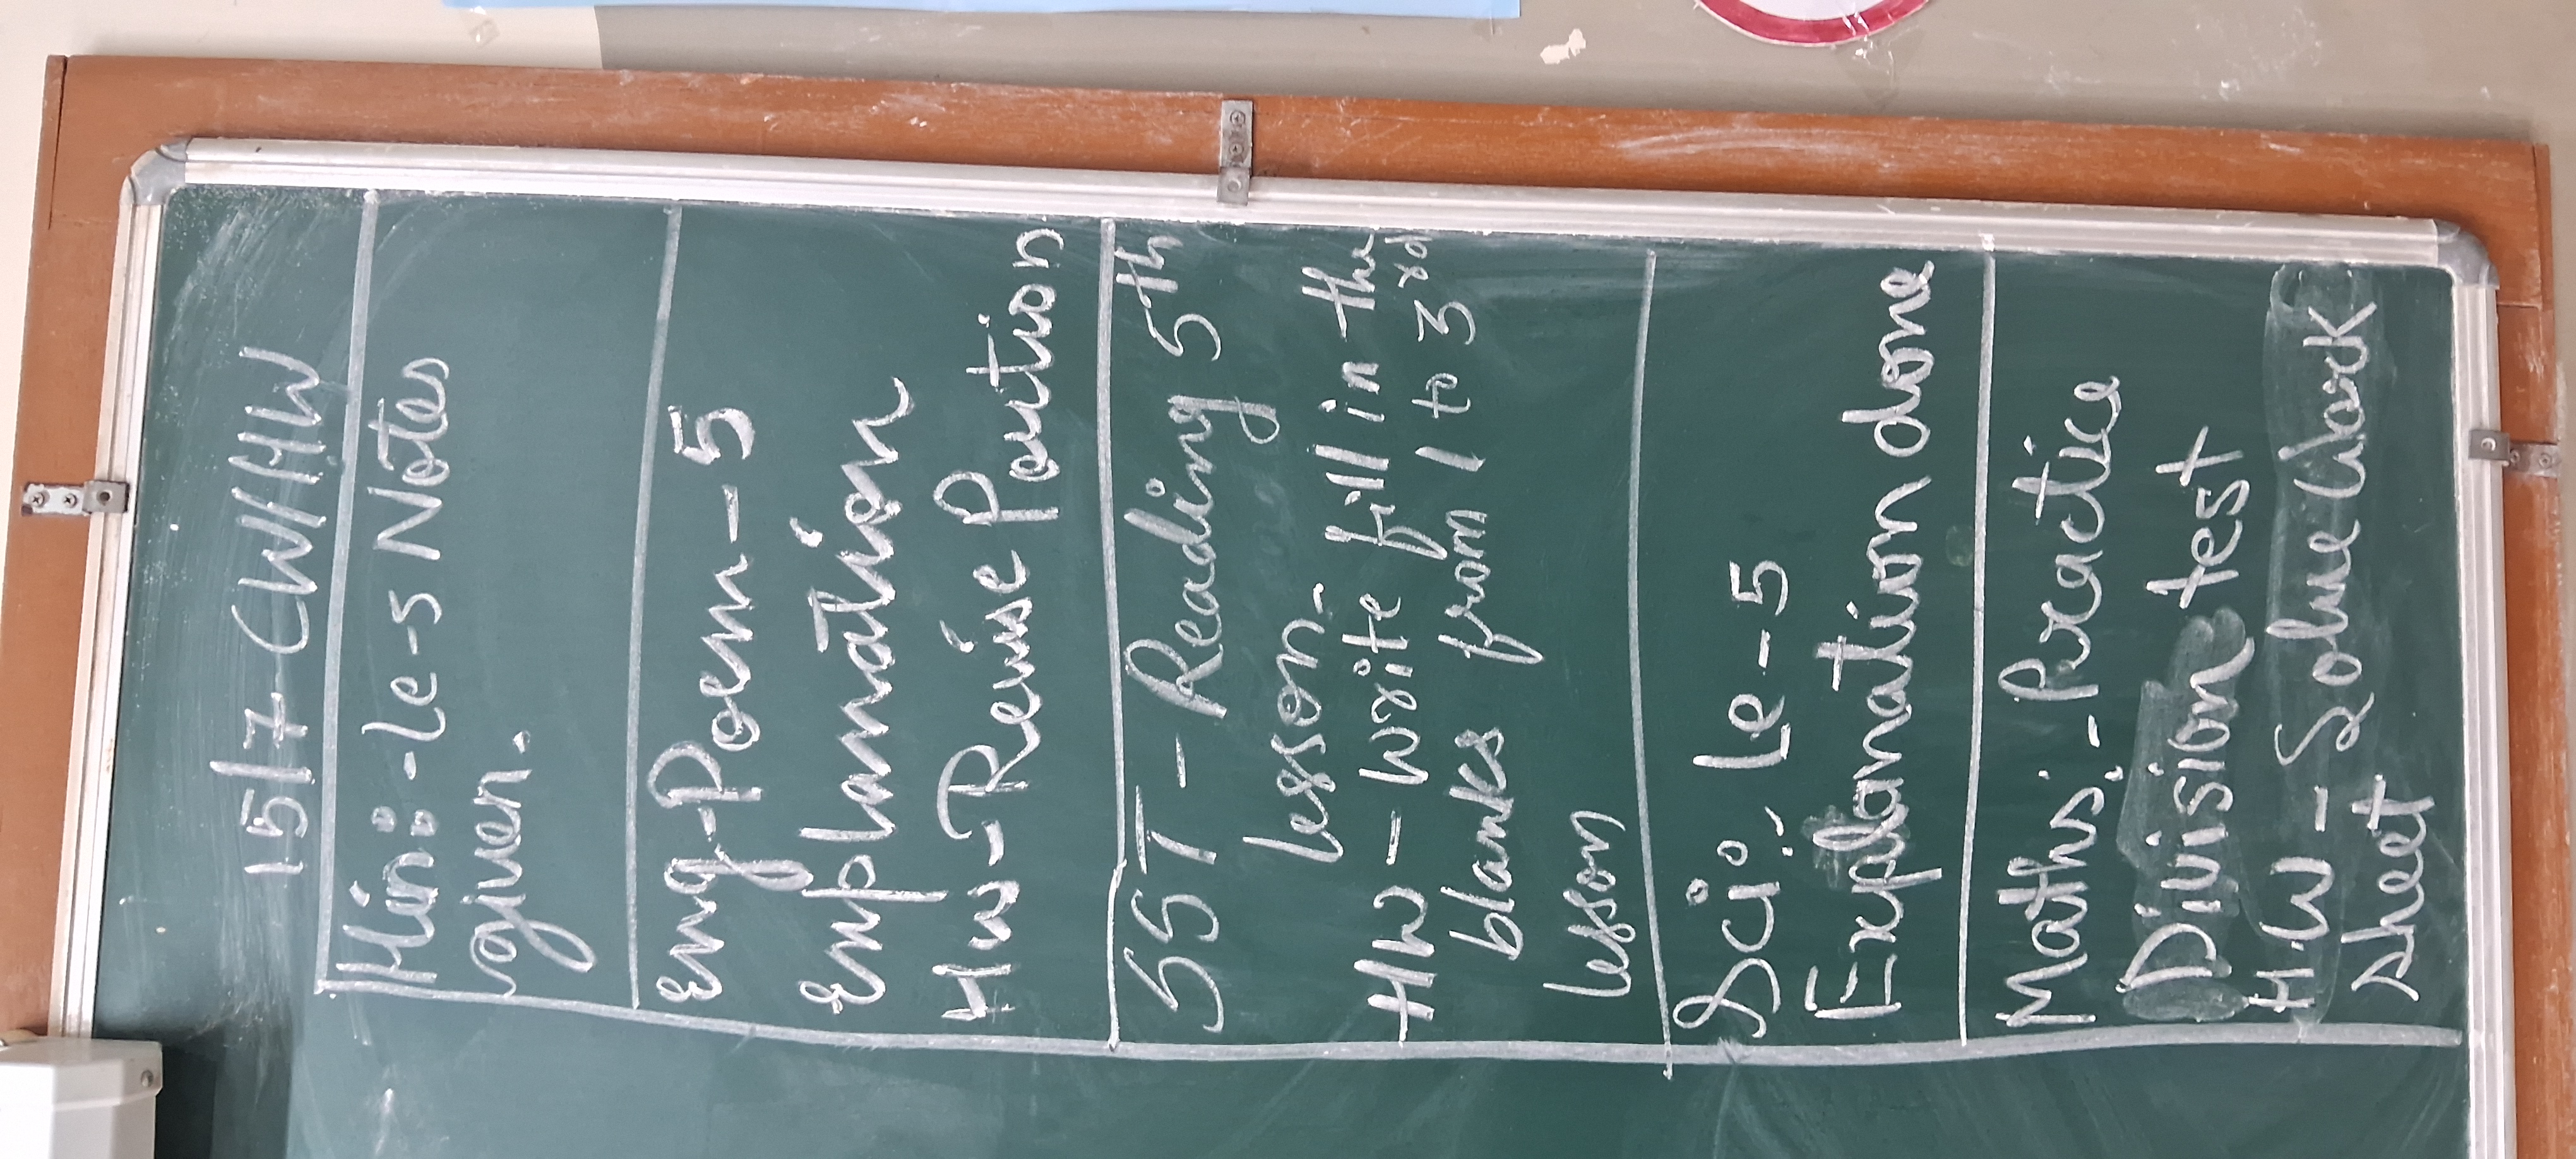 15/7 CW/HW
Hin:-Le-5 Notes
given.
Eng-Poem-5
Emplanation
HW-Revise Poution
SST-Reading 5th
lesson-
HW-write fill in the
blanks from 1 to 3rd
lesson
Sci:. Le-5
Explanation done
Maths:-Practice
Division test
H.W-Solve Work
sheet